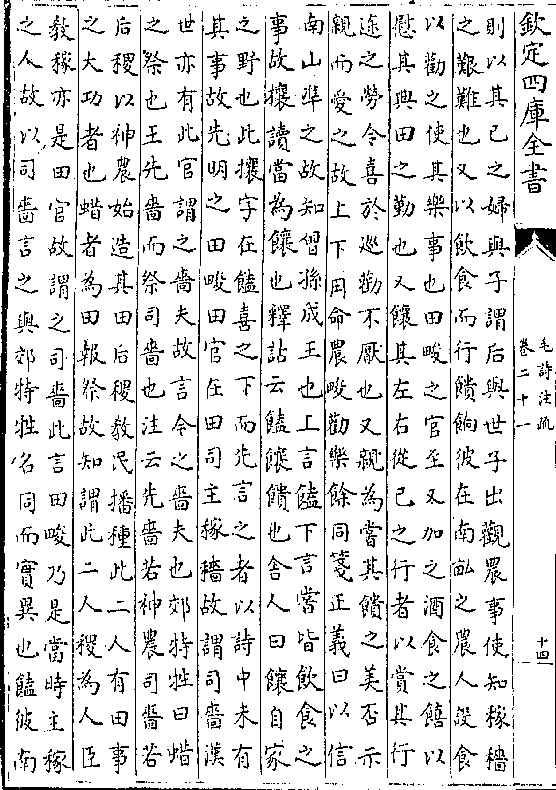 欽定四庫全書
毛詩注疏
卷二十一
十四
則以其己之婦與子謂后與世子出觀農事使知稼穡
之艱難也又以飲食而行饋餉彼在南畝之農人設食
以勸之使其樂事也田畯之官至又加之酒食之饎以
慰其典田之勤也又饟其左右從己之行者以賞其行
途之勞令喜於巡勸不厭也又親為嘗其饋之美否示
親而愛之故上下用命農畯勸樂餘同箋正義曰以信
南山準之故知曾孫成王也上言饁下言嘗皆飲食之
事故攘讀當為饟也釋詁云饁饟饋也舍人曰饟自家
之野也此攘字在饁喜之下而先言之者以詩中未有
其事故先明之田畯田官在田司主稼穡故謂司嗇漢
世亦有此官謂之嗇夫故言今之嗇夫也郊特牲曰蜡
之祭也王先嗇而祭司嗇也注云先嗇若神農司嗇若
后稷以神農始造其田后稷教民播種此二人有田事
之大功者也蜡者為田報祭故知謂此二人稷為人臣
教稼亦是田官故謂之司嗇此言田畯乃是當時主稼
之人故以司嗇言之與郊特牲名同而實異也饁彼南